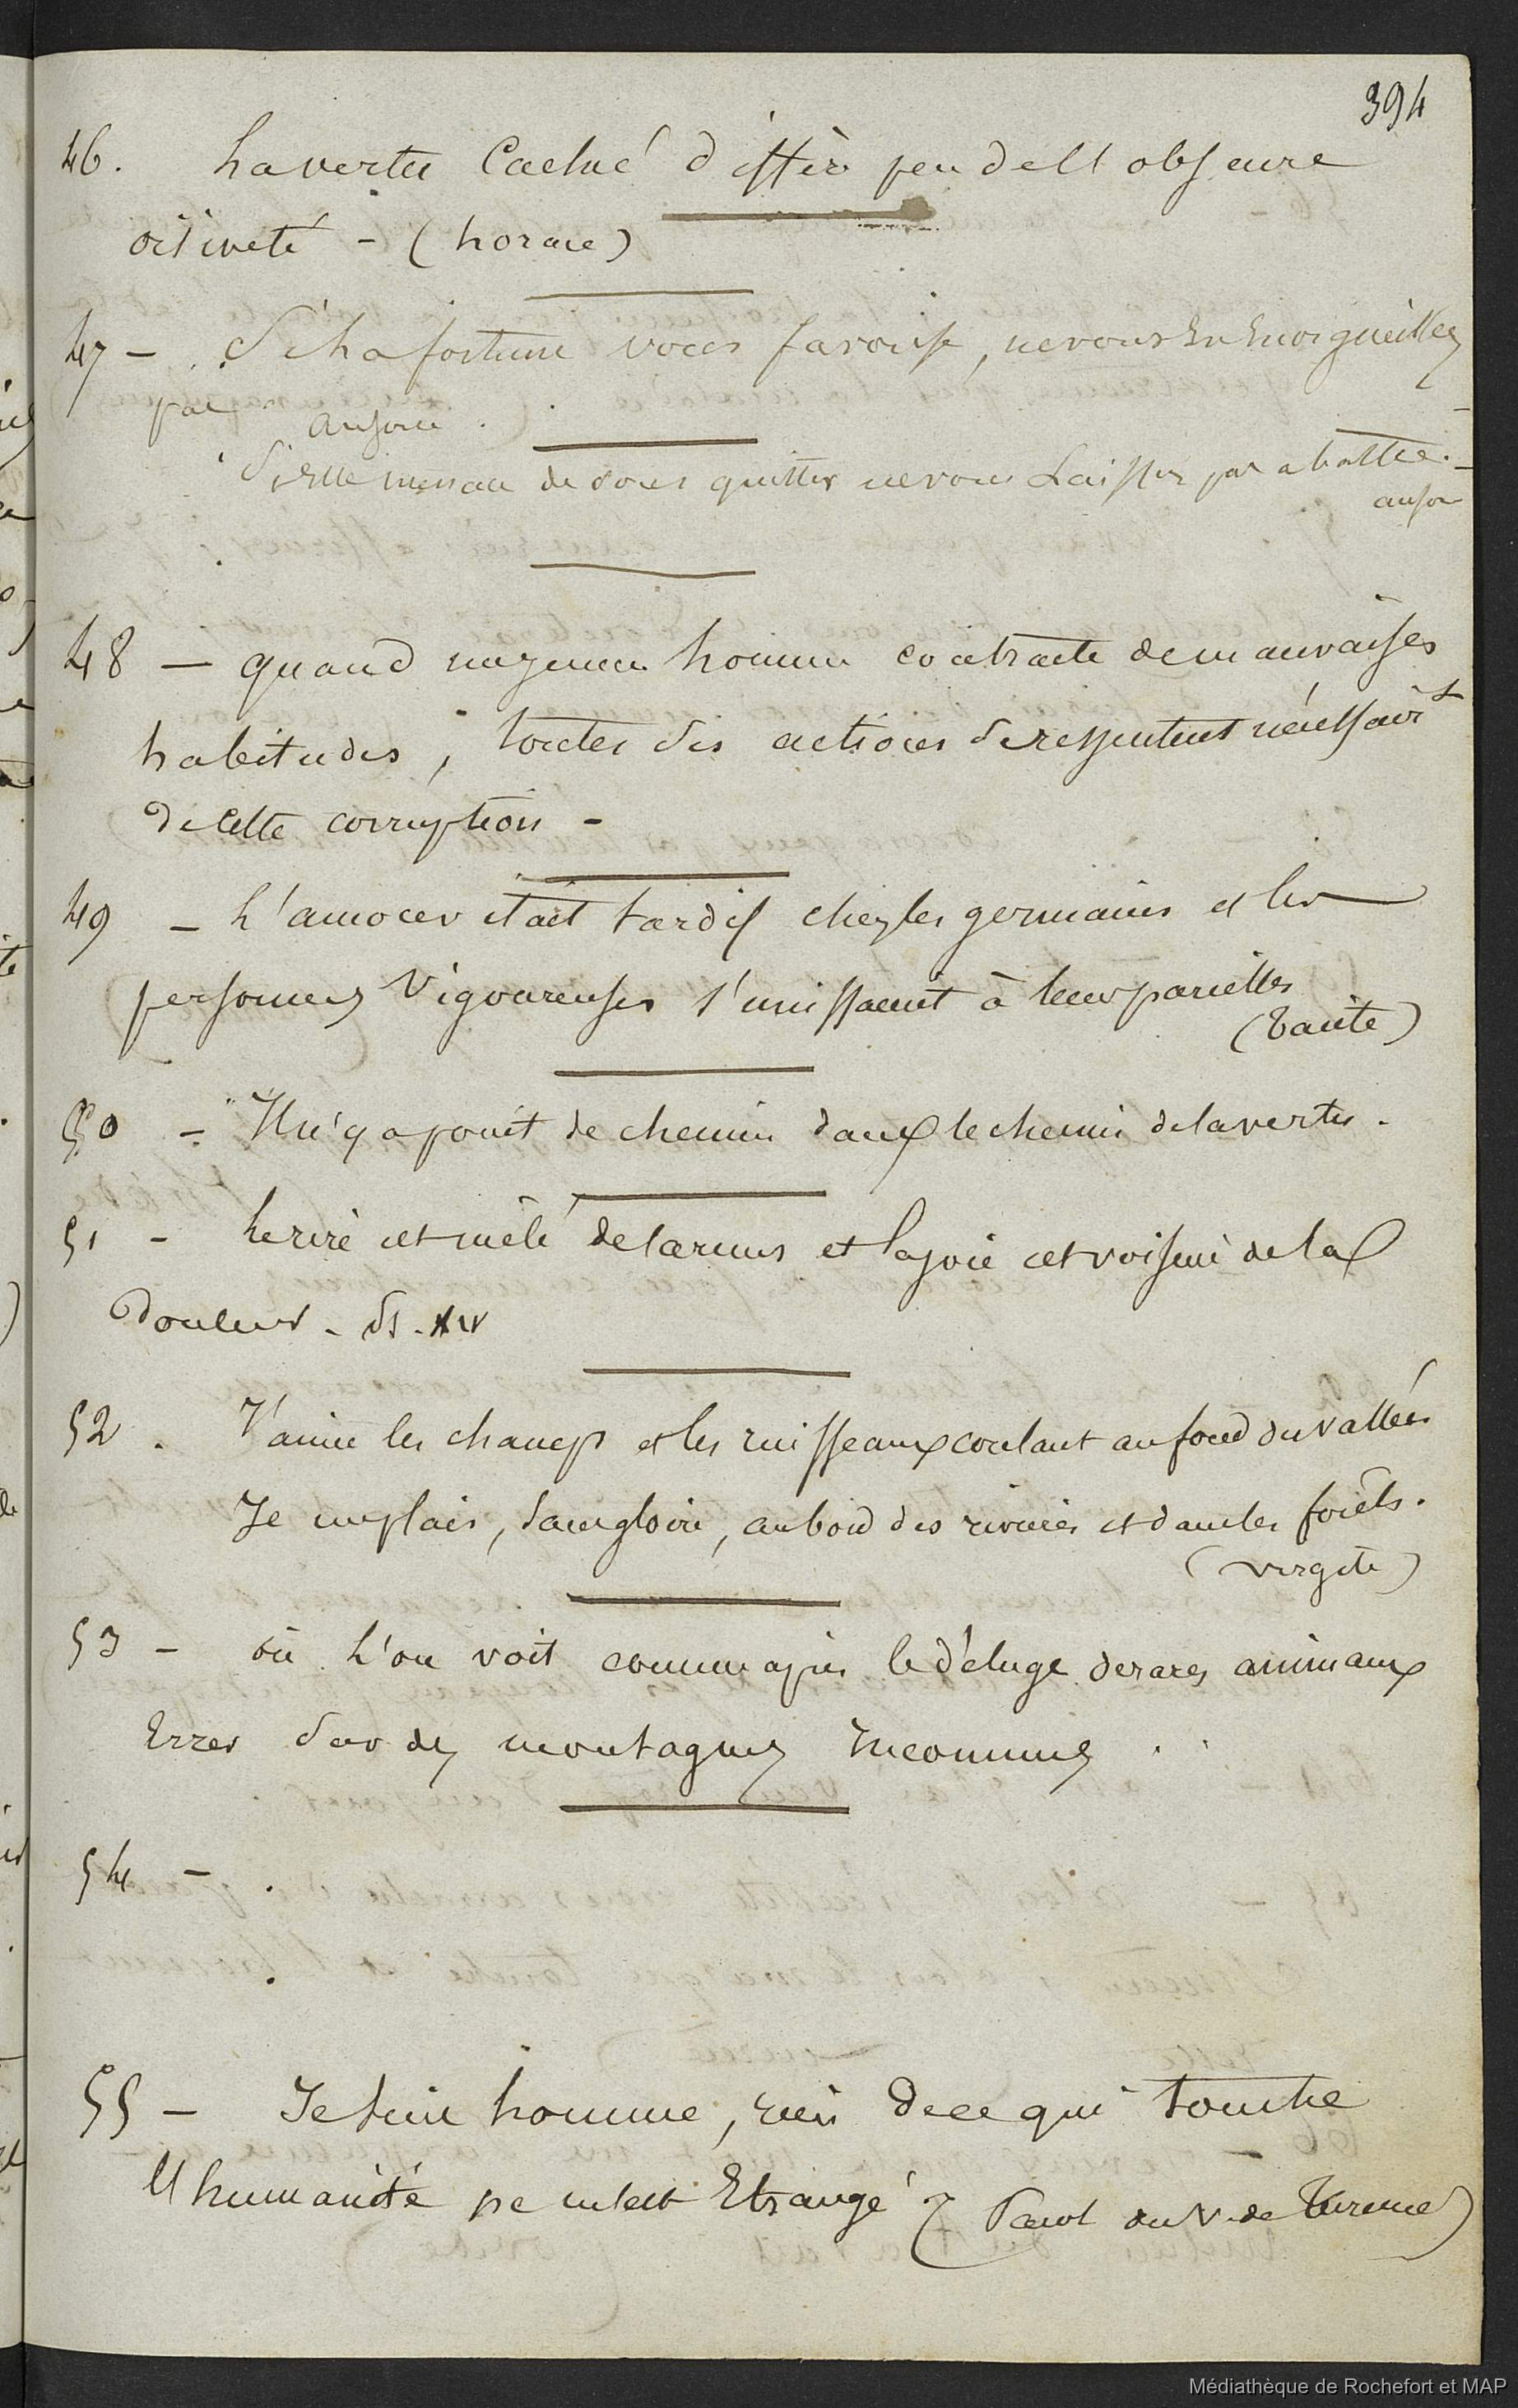 394
46. La vertu Caché différe peu de l'obscure
oisiveté - (horace)
47 - Si La fortune vous favorise, ne vous En Enorgueillez
pas ausone.
Si elle menace de vous quitter ne vous Laissez pas abattre. -
auson
48 - quand un jeune homme contracte de mauvaises
habitudes, toutes ses actions se ressentent nécessairt
de cette corruption -
49 - L'amour était tardif chez les germains et les
personnes Vigoureuses s'unissaient à leurs pareilles
(Tacite)
50 - Il n'y a point de chemin dans le chemin de la vertu.
51 - Le rire est mêlé de larmes et la joie est voisine de la
Douleur.
52. J'aime les champs et les ruisseaux coulant au fond des vallées
Je me plais, sans gloire, au bord des rivières et dans les forêts.
(virgile)
53 - où L'on voit comme après le déluge de rares animaux
Errer sur des montagnes Inconnues . .
54 - .
55 - Je suis homme, rien de ce qui touche
l'humanité ne m'est Etrangé (Parol du V. de Turenne)
Médiathèque de Rochefort et MAP